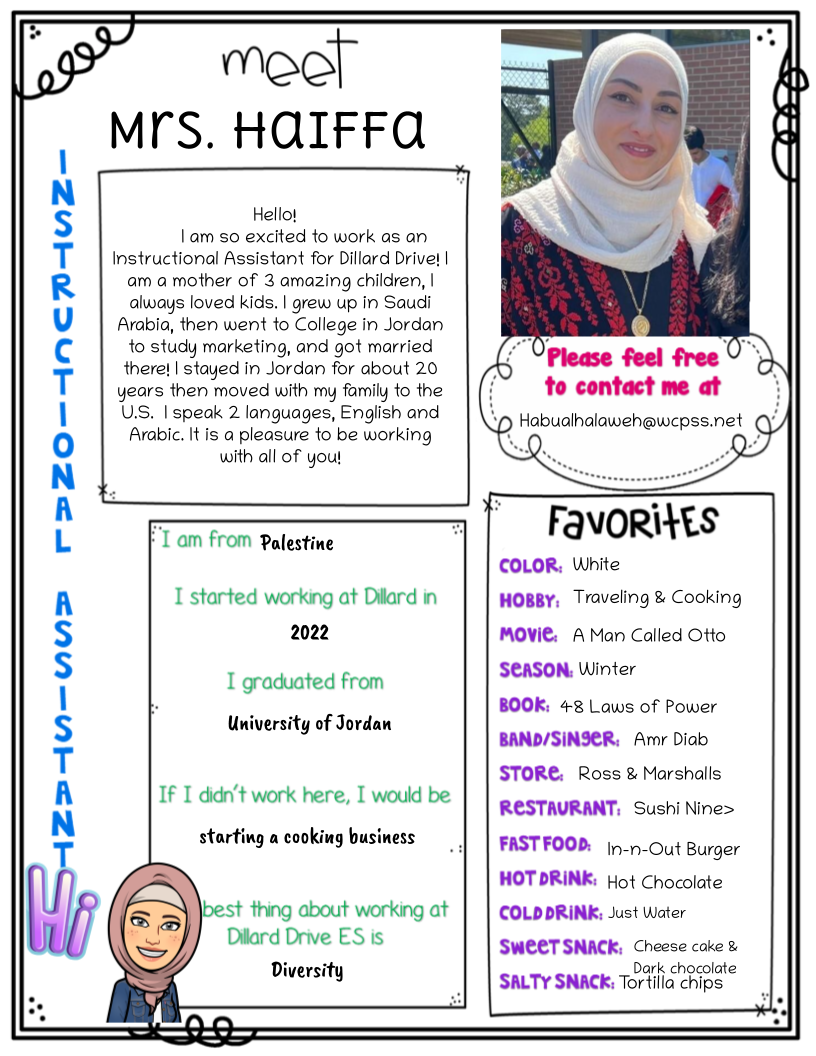 meet
Mrs. Haiffa
INSTRUCTIONAL ASSISTANT
Hello!
I am so excited to work as an
Instructional Assistant for Dillard Drive! I
am a mother of 3 amazing children, I
always loved kids. I grew up in Saudi
Arabia, then went to College in Jordan
to study marketing, and got married
there! I stayed in Jordan for about 20
years then moved with my family to the
U.S. I speak 2 languages, English and
Arabic. It is a pleasure to be working
with all of you!
Please feel free
to contact me at
Habualhalaweh@wcpss.net
I am from Palestine
I started working at Dillard in
2022
I graduated from
University of Jordan
If I didn't work here, I would be
starting a cooking business
best thing about working at
Dillard Drive ES is
Diversity
Hi
FAVORITES
COLOR: White
HOBBY: Traveling & Cooking
MOVIE: A Man Called Otto
SEASON: Winter
BOOK: 48 Laws of Power
BAND/SINGER: Amr Diab
STORE: Ross & Marshalls
RESTAURANT: Sushi Nine>
FAST FOOD: In-n-Out Burger
HOT DRINK: Hot Chocolate
COLD DRINK: Just Water
SWEET SNACK: Cheese cake &
Dark chocolate
SALTY SNACK: Tortilla chips